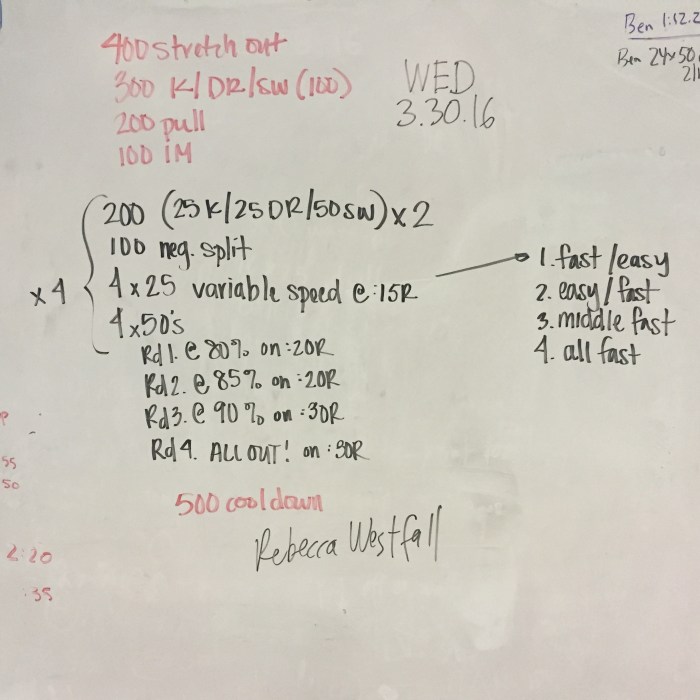 400 stretch out
300 K/DR/SW (100)
200 pull
100 IM
WED
3.30.16
Ben 1:12.2
Ben 24x50
x4
200 (25K/25DR/50SW) x2
100 neg. split
4x25 variable speed @:15R
4x50's
Rd 1. @ 80% on :20R
Rd 2. @ 85% on :20R
Rd 3. @ 90% on :30R
Rd 4. ALL OUT! on :30R
1. fast/easy
2. easy/fast
3. middle fast
4. all fast
500 cool down
Rebecca Westfall
55
50
2:20
:35